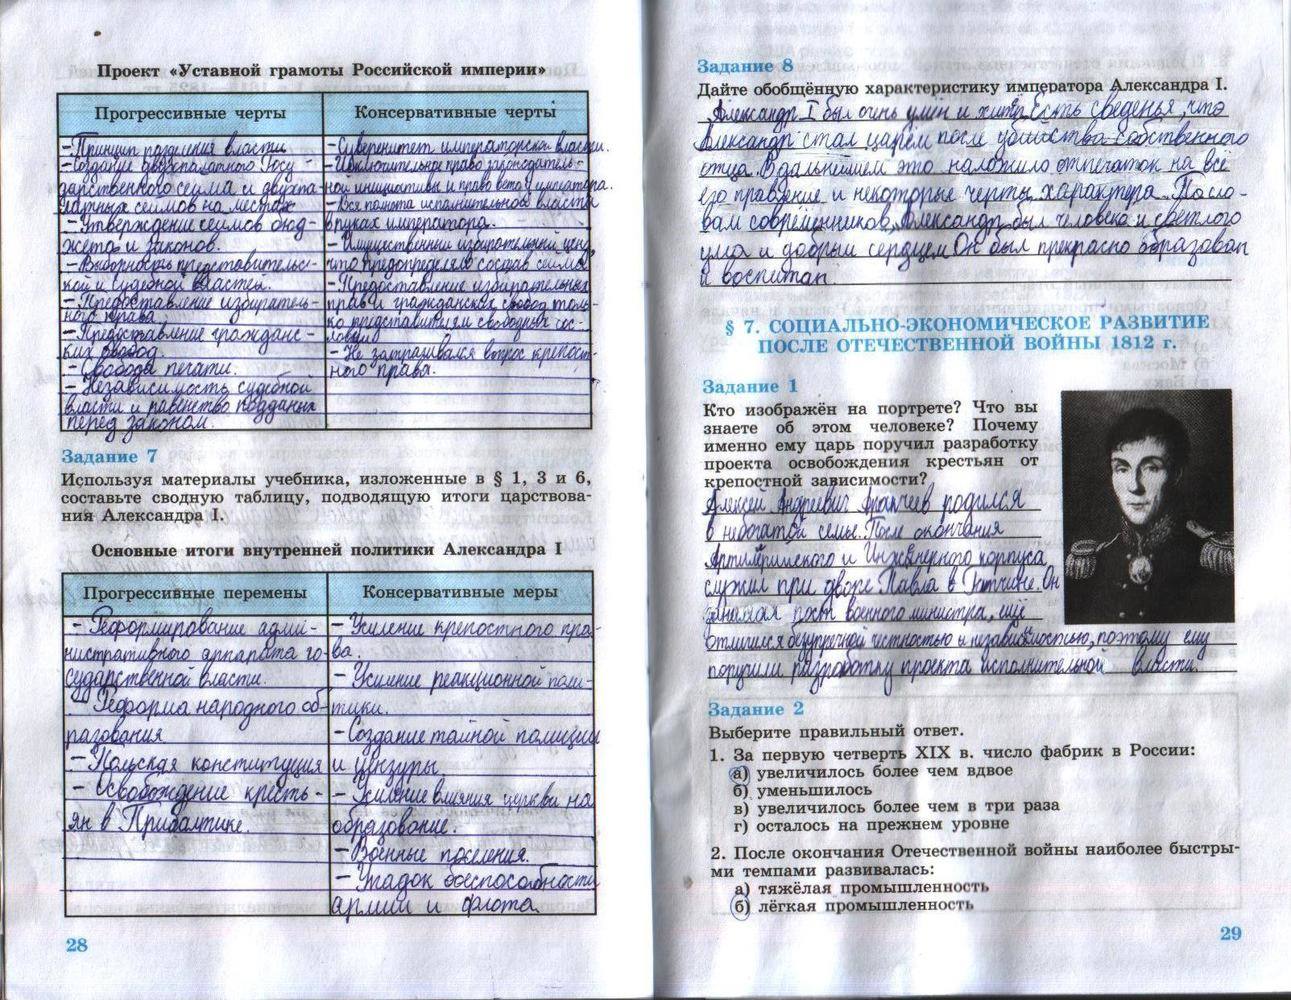 Проект «Уставной грамоты Российской империи»
Прогрессивные черты
- Принцип разделения власти
- Создание двухпалатного Госу-
дарственного сейма и двухпа-
латных сеймов на местах
- Утверждение сеймов бюд-
жета и законов.
- Выборность представительс-
кой и судебной властей.
- Предоставление избиратель-
ного права
- Предоставление гражданс-
ких свобод.
- Свобода печати.
- Независимость судебной
власти и равенство подданых
перед законом.
Консервативные черты
- Суверенитет императорской власти.
- Исключительное право законодатель-
ной инициативы и право вето у императора.
- Вся полнота исполнительной власти
в руках императора.
- Имущественный избирательный ценз,
что предопределяло состав сейма
- Предоставление избирательных
прав и гражданских свобод толь-
ко представителям свободных сос-
ловий
- Не затрагивался вопрос крепост-
ного права.
Задание 7
Используя материалы учебника, изложенные в § 1, 3 и 6,
составьте сводную таблицу, подводящую итоги царствова-
ния Александра I.
Основные итоги внутренней политики Александра I
Прогрессивные перемены
- Реформирование адми-
нистративного аппарата го-
сударственной власти.
- Реформа народного об-
разования
- Польская конституция
- Освобождение кресть-
ян в Прибалтике.
Консервативные меры
- Усиление крепостного пра-
ва.
- Усиление реакционной поли-
тики.
- Создание тайной полиции
и цензуры
- Усиление влияния церкви на
образование.
- Военные поселения.
- Упадок боеспособности
армии и флота
28
Задание 8
Дайте обобщённую характеристику императора Александра I.
Александр I был очень умён и хитёр. Есть сведенья, что
Александр стал царём после убийства собственного
отца. В дальнейшем это наложило отпечаток на всё
его правление и некоторые черты характера. По сло-
вам современников, Александр был человека и светлого
ума и добрым сердцем. Он был прекрасно образован
и воспитан.
§ 7. СОЦИАЛЬНО-ЭКОНОМИЧЕСКОЕ РАЗВИТИЕ
ПОСЛЕ ОТЕЧЕСТВЕННОЙ ВОЙНЫ 1812 г.
Задание 1
Кто изображён на портрете? Что вы
знаете об этом человеке? Почему
именно ему царь поручил разработку
проекта освобождения крестьян от
крепостной зависимости?
Алексей Андреевич Аракчеев родился
в небогатой семье. После окончания
Артиллерийского и Инженерного корпуса
служил при дворе Павла в Гатчине. Он
занимал пост военного министра, ещё
отличился безупречной честностью и независимостью, поэтому ему
поручили разработку проекта исполнительной власти.
Задание 2
Выберите правильный ответ.
1. За первую четверть XIX в. число фабрик в России:
а) увеличилось более чем вдвое
б) уменьшилось
в) увеличилось более чем в три раза
г) осталось на прежнем уровне
2. После окончания Отечественной войны наиболее быстры-
ми темпами развивалась:
а) тяжёлая промышленность
б) лёгкая промышленность
29